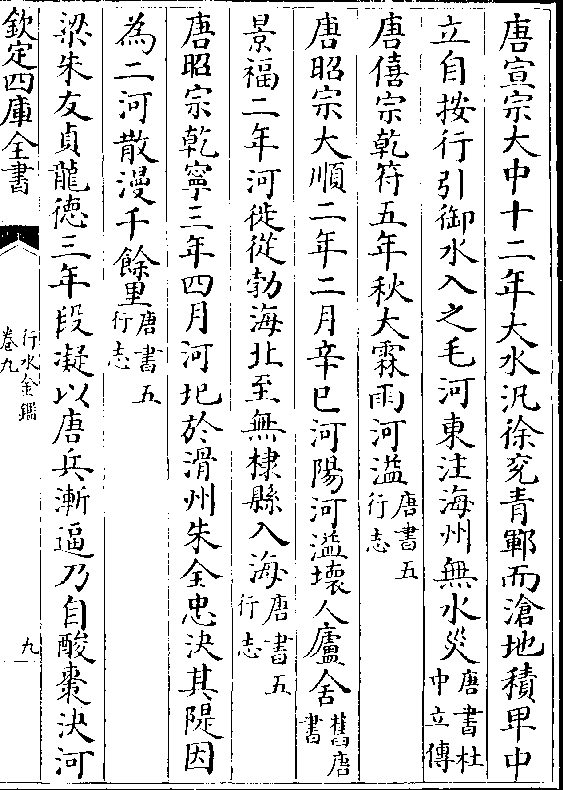 唐宣宗大中十二年大水汎徐兖青鄆而滄地積卑中
立自按行引御水入之毛河東注海州無水災唐書杜中立傳
唐僖宗乾符五年秋大霖雨河溢唐書五行志
唐昭宗大順二年二月辛巳河陽河溢壞人廬舍舊唐書
景福二年河徙從勃海北至無棣縣入海唐書五行志
唐昭宗乾寧三年四月河圮於滑州朱全忠決其隄因
為二河散漫千餘里唐書五行志
梁朱友貞龍德三年段凝以唐兵漸逼乃自酸棗決河
欽定四庫全書
行水金鑑
卷九
九